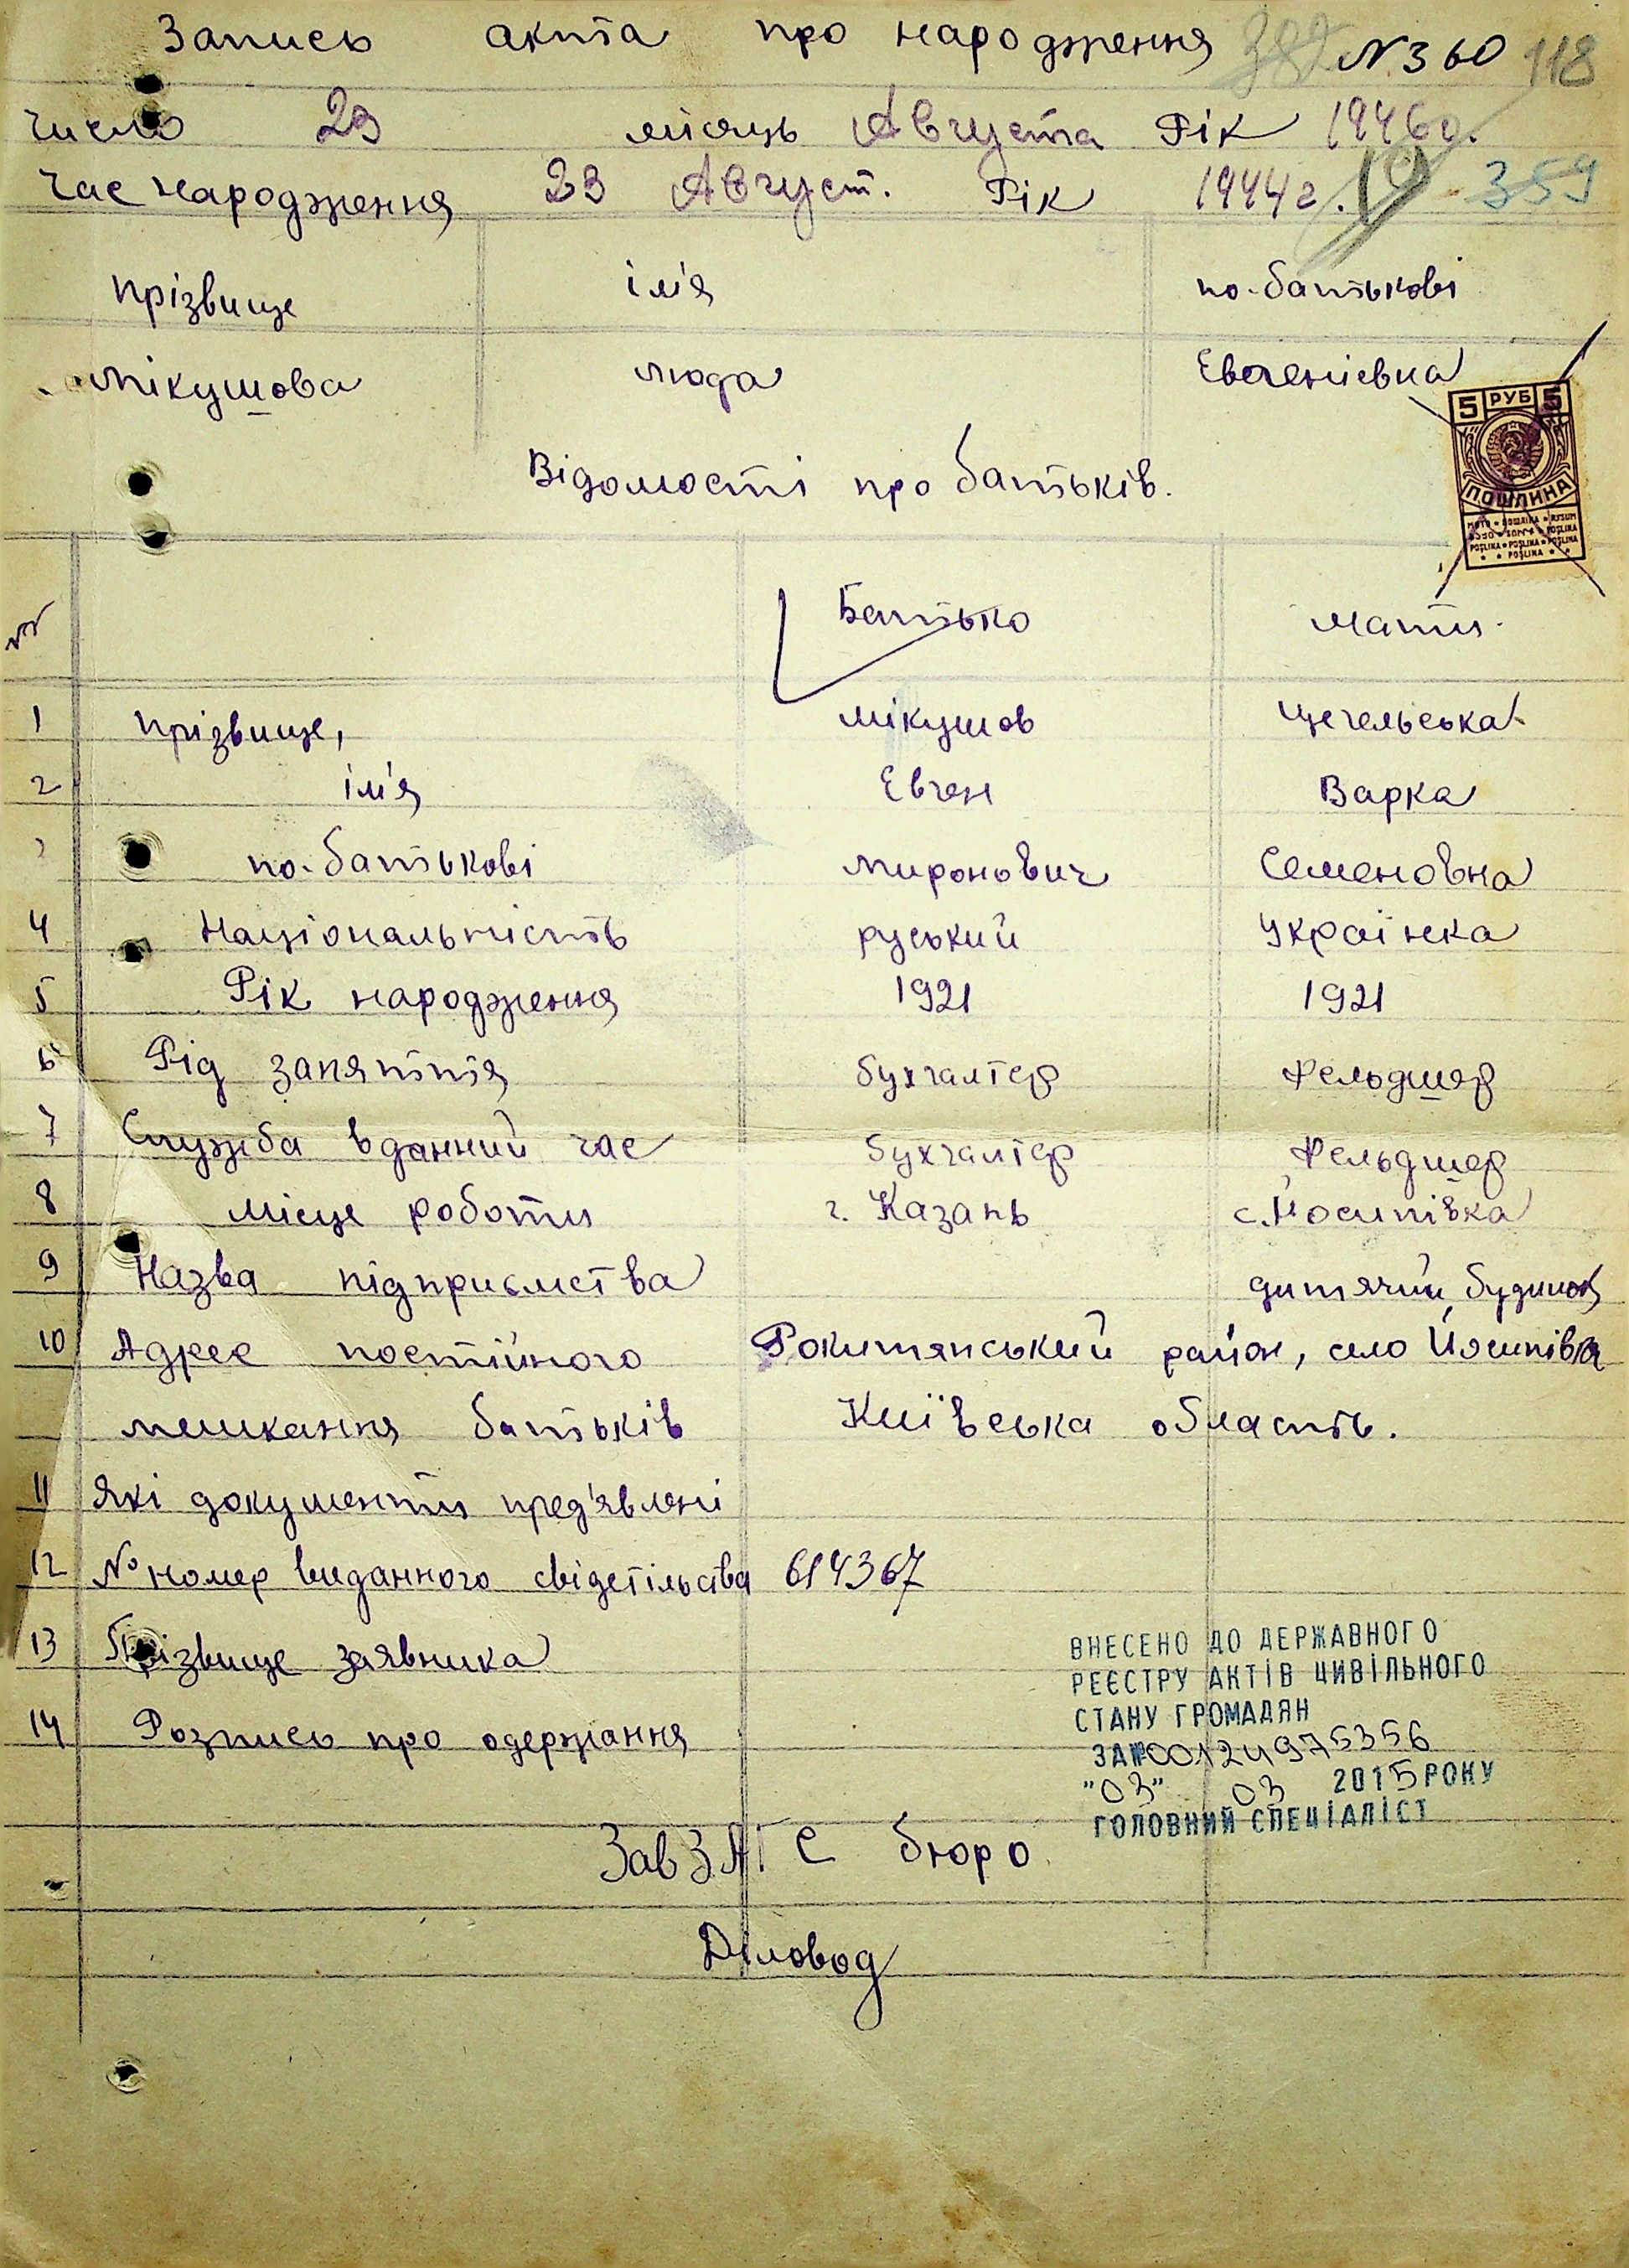 Запись акта про народження 382 N360 118
число 29 місяць Августа Рік 1946г.
час народження 23 Август. Рік 1944г. 359
прізвище ім'я по-батькові
Мікушова Люда Евгенієвна
5 РУБ 5
ПОШЛИНА
Відомості про батьків.
Батько Мати
1 прізвище, Мікушов Цегельська
2 ім'я Евген Варка
по-батькові Миронович Семеновна
4 Національність руський Українка
5 Рік народження 1921 1921
6 Рід заняття бухгалтер Фельдшер
7 Служба в данний час бухгалтер Фельдшер
8 Місце роботи г. Казань с. Йосипівка
9 Назва підприємства дитячий будинок
10 Адрес постійного Рокитянський район, село Йосипівка
мешкання батьків Київська область.
11 Які документи пред'явлені
12 № номер виданного свідетільства 614367
13 Прізвище заявника
14 Розпись про одержання
ВНЕСЕНО ДО ДЕРЖАВНОГО
РЕЄСТРУ АКТІВ ЦИВІЛЬНОГО
СТАНУ ГРОМАДЯН
ЗА №00124975356
"03" 03 2015 РОКУ
ГОЛОВНИЙ СПЕЦІАЛІСТ
Зав ЗАГС бюро
Діловод